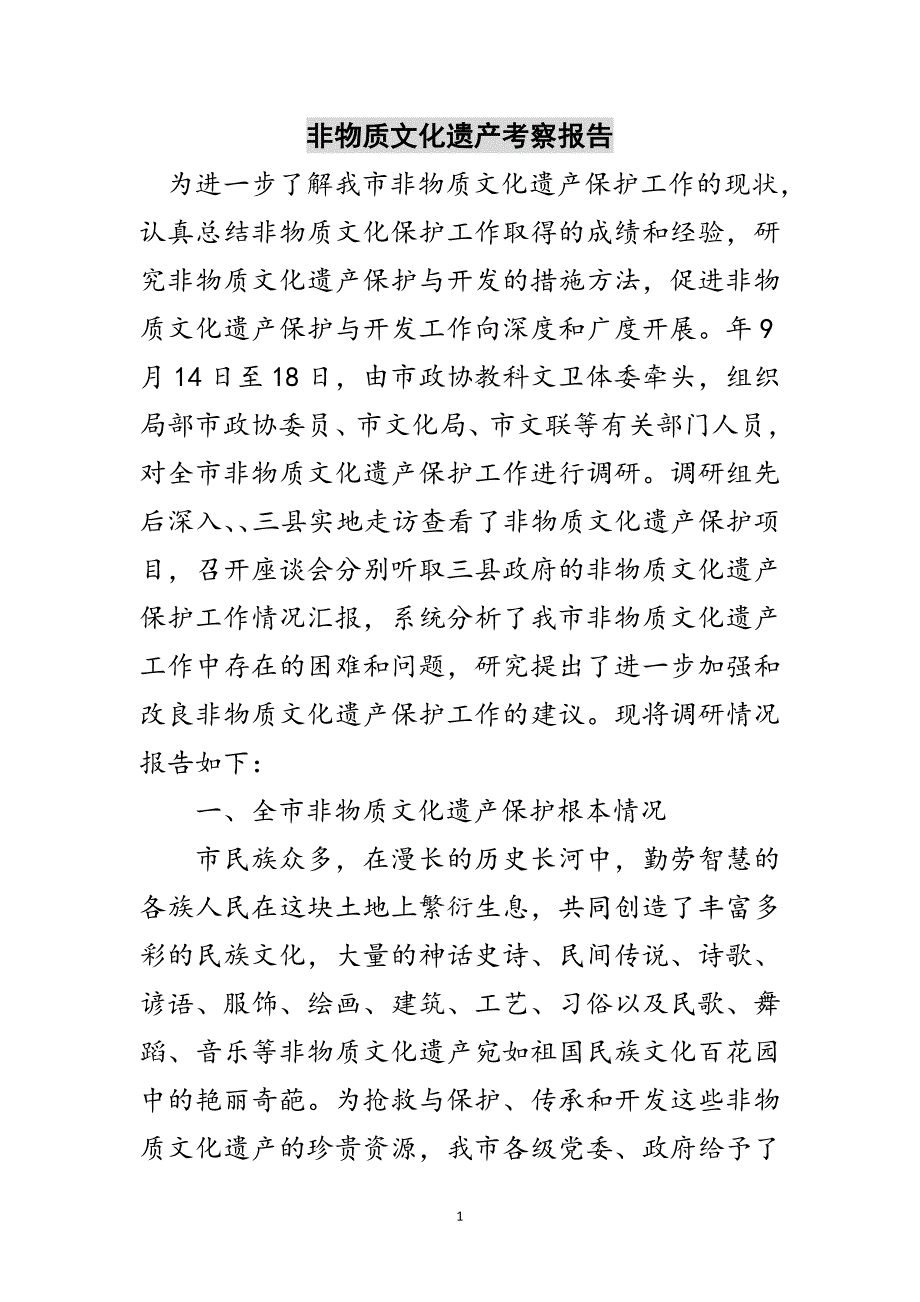 非物质文化遗产考察报告
为进一步了解我市非物质文化遗产保护工作的现状，
认真总结非物质文化保护工作取得的成绩和经验，研
究非物质文化遗产保护与开发的措施方法，促进非物
质文化遗产保护与开发工作向深度和广度开展。年9
月14日至18日，由市政协教科文卫体委牵头，组织
局部市政协委员、市文化局、市文联等有关部门人员，
对全市非物质文化遗产保护工作进行调研。调研组先
后深入、、三县实地走访查看了非物质文化遗产保护项
目，召开座谈会分别听取三县政府的非物质文化遗产
保护工作情况汇报，系统分析了我市非物质文化遗产
工作中存在的困难和问题，研究提出了进一步加强和
改良非物质文化遗产保护工作的建议。现将调研情况
报告如下：
一、全市非物质文化遗产保护根本情况
市民族众多，在漫长的历史长河中，勤劳智慧的
各族人民在这块土地上繁衍生息，共同创造了丰富多
彩的民族文化，大量的神话史诗、民间传说、诗歌、
谚语、服饰、绘画、建筑、工艺、习俗以及民歌、舞
蹈、音乐等非物质文化遗产宛如祖国民族文化百花园
中的艳丽奇葩。为抢救与保护、传承和开发这些非物
质文化遗产的珍贵资源，我市各级党委、政府给予了
1